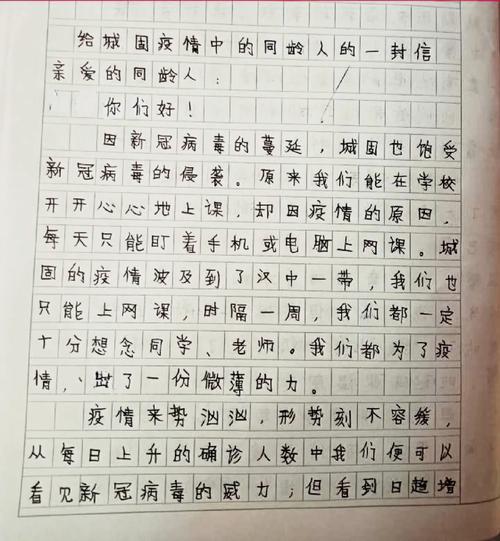 给城固疫情中的同龄人的一封信
亲爱的同龄人：
你们好！
因新冠病毒的蔓延，城固也饱受
新冠病毒的侵袭。原来我们能在学校
开开心心地上课，却因疫情的原因，
每天只能盯着手机或电脑上网课。城
固的疫情波及到了汉中一带，我们也
只能上网课，时隔一周，我们都一定
十分想念同学、老师。我们都为了疫
情，出了一份微薄的力。
疫情来势汹汹，形势刻不容缓，
从每日上升的确诊人数中我们便可以
看见新冠病毒的威力；但看到日趋增